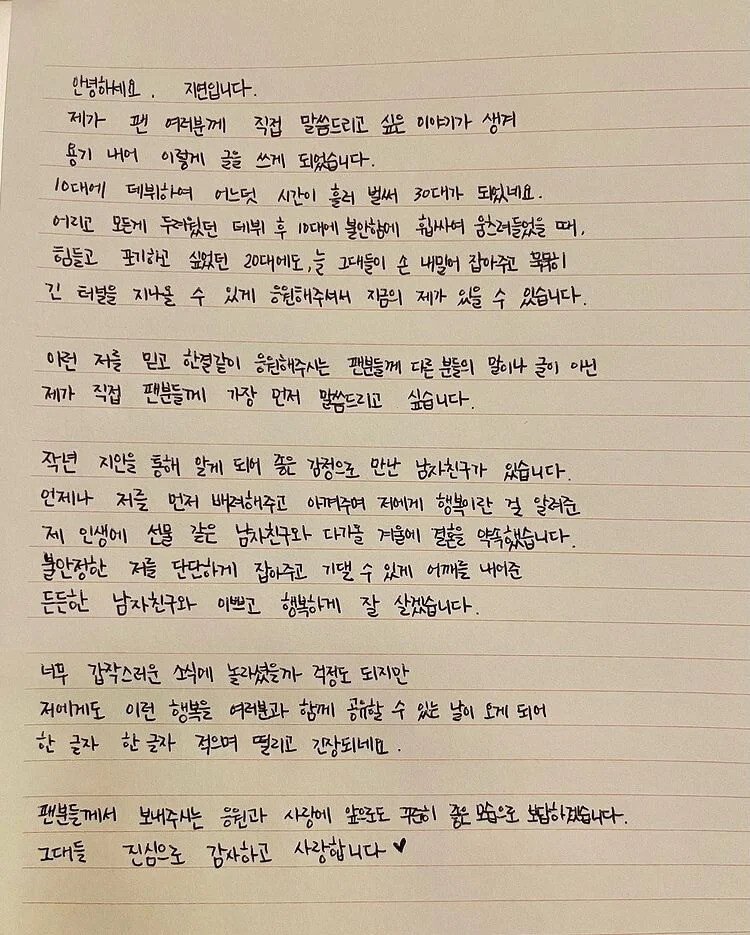 안녕하세요, 지연입니다.
제가 팬 여러분께 직접 말씀드리고 싶은 이야기가 생겨
용기 내어 이렇게 글을 쓰게 되었습니다.
10대에 데뷔하여 어느덧 시간이 흘러 벌써 30대가 되었네요.
어리고 모든게 두려웠던 데뷔 후 10대에 불안함에 휩싸여 움츠려들었을 때,
힘들고 포기하고 싶었던 20대에도, 늘 그대들이 손 내밀어 잡아주고 묵묵히
긴 터널을 지나올 수 있게 응원해주셔서 지금의 제가 있을 수 있습니다.
이런 저를 믿고 한결같이 응원해주시는 팬분들께 다른 분들의 말이나 글이 아닌
제가 직접 팬분들께 가장 먼저 말씀드리고 싶습니다.
작년 지인을 통해 알게 되어 좋은 감정으로 만난 남자친구가 있습니다.
언제나 저를 먼저 배려해주고 아껴주며 저에게 행복이란 걸 알려준
제 인생에 선물 같은 남자친구와 다가올 겨울에 결혼을 약속했습니다.
불안정한 저를 단단하게 잡아주고 기댈 수 있게 어깨를 내어준
든든한 남자친구와 이쁘고 행복하게 잘 살겠습니다.
너무 갑작스러운 소식에 놀라셨을까 걱정도 되지만
저에게도 이런 행복을 여러분과 함께 공유할 수 있는 날이 오게 되어
한 글자 한 글자 적으며 떨리고 긴장되네요.
팬분들께서 보내주시는 응원과 사랑에 앞으로도 꾸준히 좋은 모습으로 보답하겠습니다.
그대들 진심으로 감사하고 사랑합니다 ♥